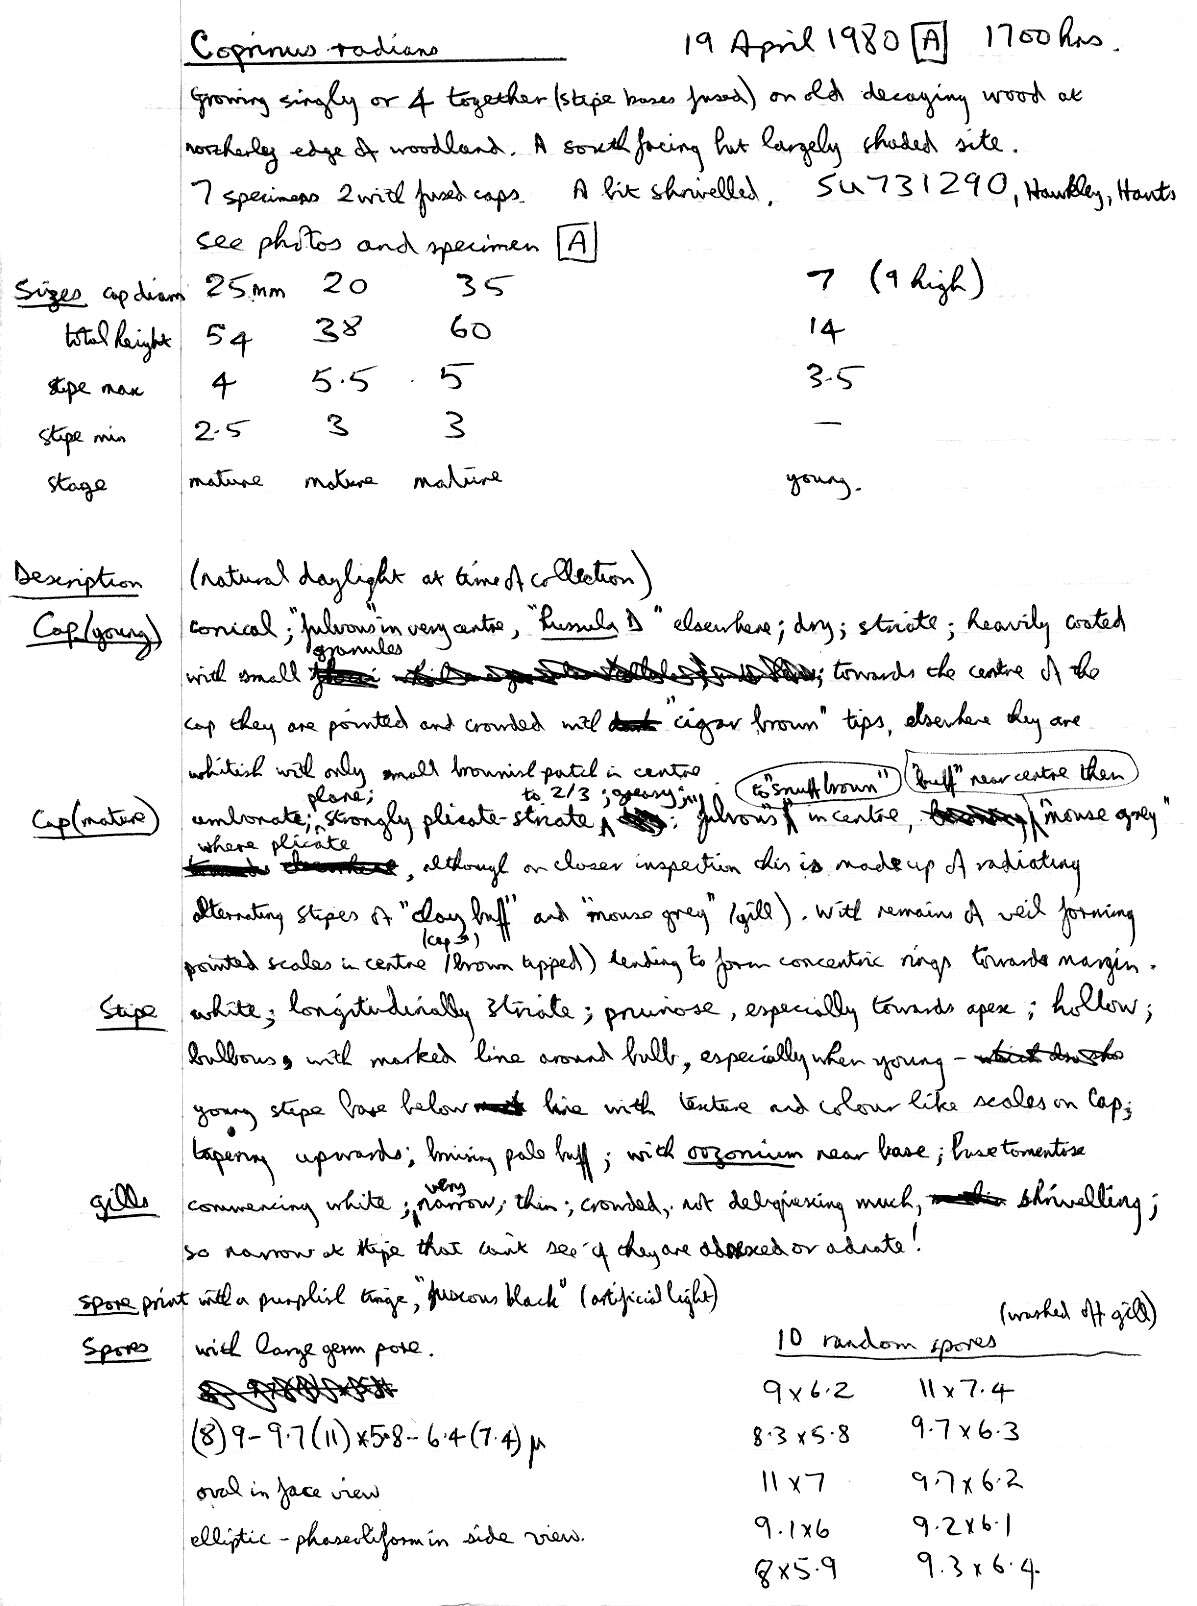 Coprinus radians 19 April 1980 [A] 1700 hrs.
Growing singly or 4 together (stipe bases fused) on old decaying wood at
northerly edge of woodland. A south facing but largely shaded site.
7 specimens 2 with fused caps. A bit shrivelled. SU731290, Hawkley, Hants
see photos and specimen [A]
Sizes cap diam 25mm 20 35 7 (9 high)
total height 54 38 60 14
stipe max 4 5.5 5 3.5
stipe min 2.5 3 3 —
stage mature mature mature young.
Description (natural daylight at time of collection)
Cap (young) conical; "fulvous" in very centre, "Russula D" elsewhere; dry; striate; heavily coated
granules
with small ; towards the centre of the
cap they are pointed and crowded with "cigar brown" tips, elsewhere they are
whitish with only small brownish patch in centre
plane; to 2/3; greasy; to "snuff brown" "buff" near centre then
Cap (mature) umbonate; strongly plicate-striate ; "fulvous" in centre, "mouse grey"
where plicate
, although on closer inspection this is made up of radiating
alternating stipes of "clay buff" and "mouse grey" (gill). With remains of veil forming
(cap)
pointed scales in centre (brown tipped) tending to form concentric rings towards margin.
Stipe white; longitudinally striate; pruinose, especially towards apex; hollow;
bulbous, with marked line around bulb, especially when young –
young stipe base below line with texture and colour like scales on cap;
tapering upwards; bruising pale buff; with ozonium near base; base tomentose
very
gills commencing white; narrow; thin; crowded, not deliquescing much, shrivelling;
so narrow at stipe that can't see if they are adnexed or adnate!
spore print with a purplish tinge, "fuscous black" (artificial light)
(washed off gill)
Spores with large germ pore. 10 random spores
9 x 6.2 11 x 7.4
(8) 9 – 9.7 (11) x 5.8 – 6.4 (7.4) µ 8.3 x 5.8 9.7 x 6.3
oval in face view 11 x 7 9.7 x 6.2
elliptic - phaseoliform in side view. 9.1 x 6 9.2 x 6.1
8 x 5.9 9.3 x 6.4